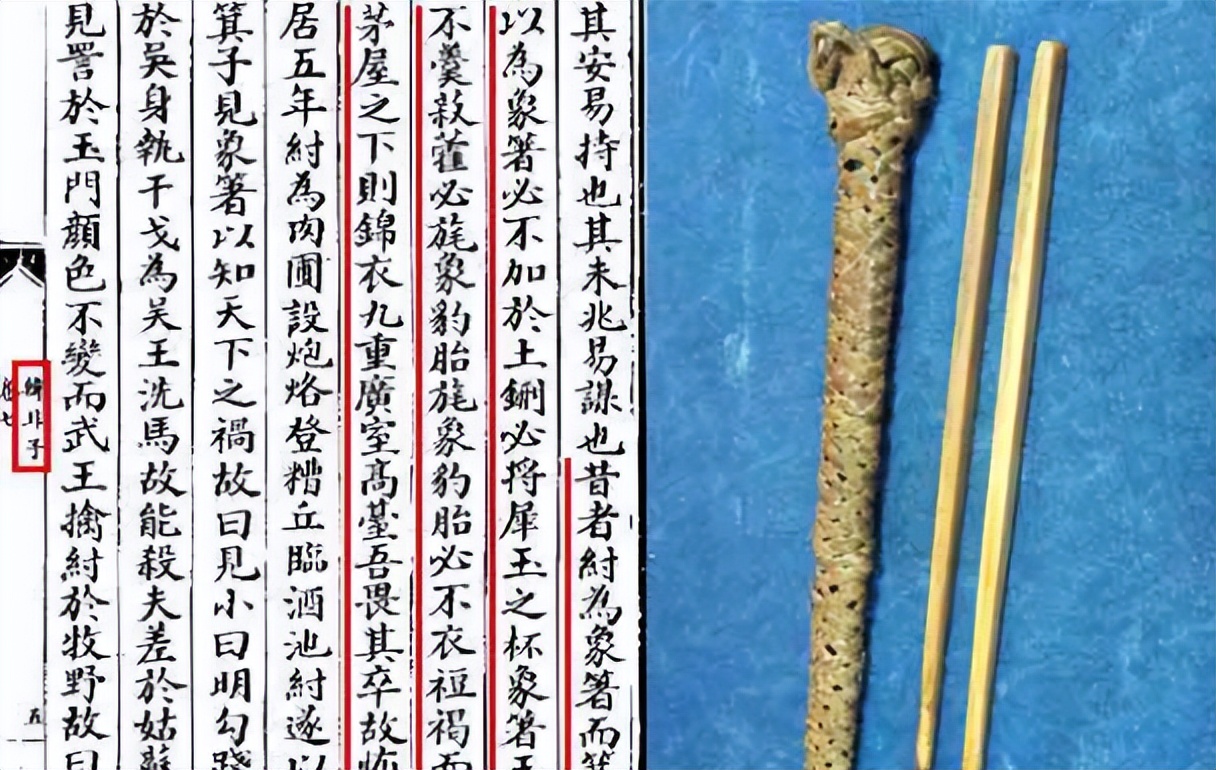 其安易持也其未兆易謀也昔者紂為象箸而
以為象箸必不加於土鉶必將犀玉之杯象箸玉
不羹菽藿必旄象豹胎旄象豹胎必不衣裋褐而
茅屋之下則錦衣九重廣室高臺吾畏其卒故怖
居五年紂為肉圃設炮烙登糟丘臨酒池紂遂以
箕子見象箸以知天下之禍故曰見小曰明勾踐
於吳身執干戈為吳王洗馬故能殺夫差於姑蘇
見詈於玉門顏色不變而武王擒紂於牧野故曰
韓非子
五